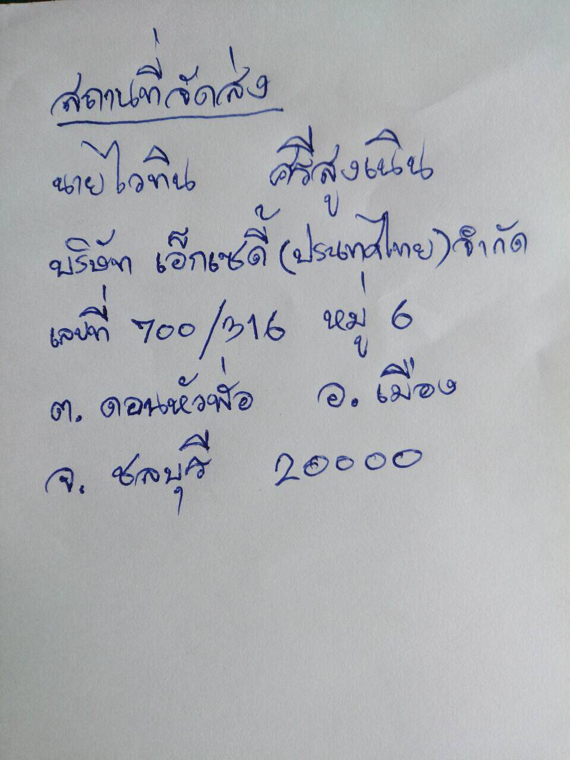 สถานที่จัดส่ง
นายไวทิน ศรีสูงเนิน
บริษัท เอ็กเซดี้ (ประเทศไทย) จำกัด
เลขที่ 700/316 หมู่ 6
ต. ดอนหัวฬ่อ อ. เมือง
จ. ชลบุรี 20000